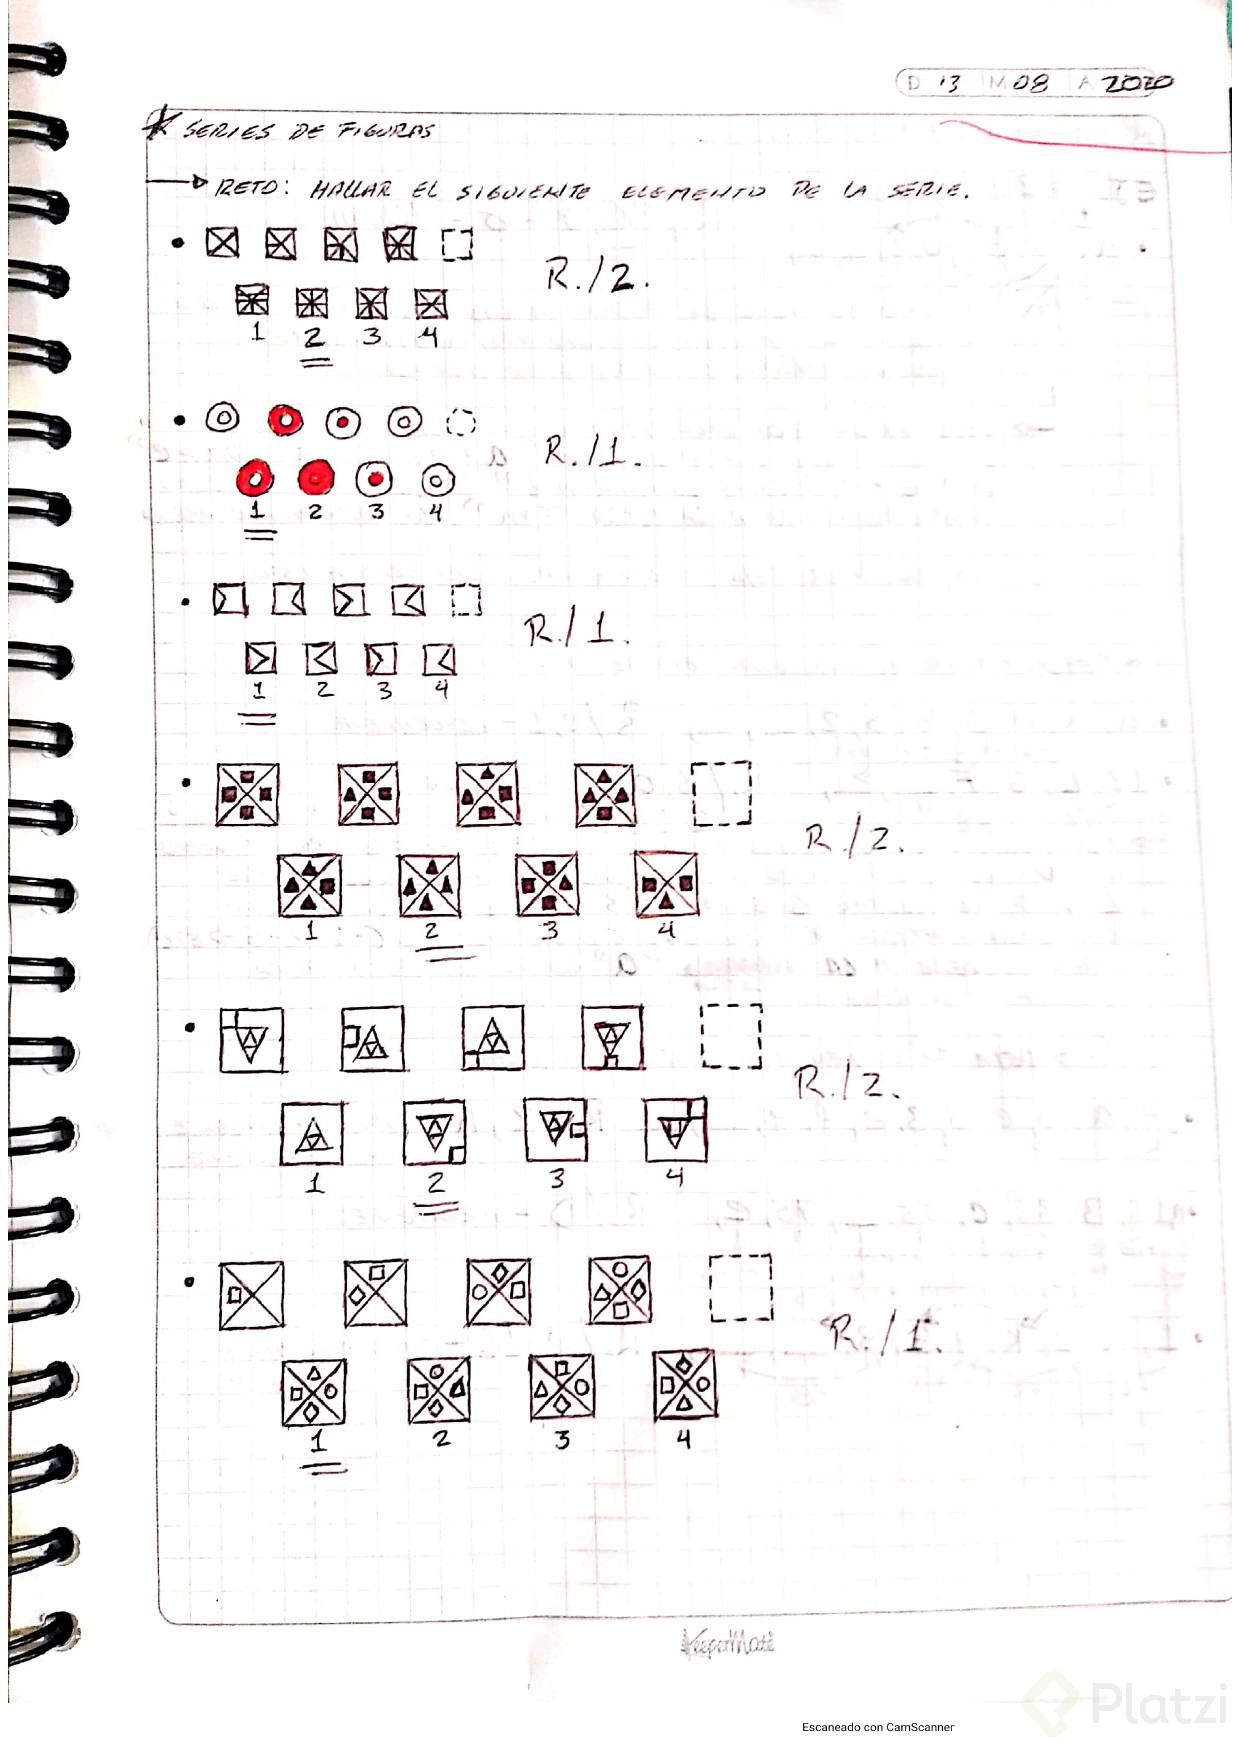 D 13 M 08 A 2020
* SERIES DE FIGURAS
RETO: HALLAR EL SIGUIENTE ELEMENTO DE LA SERIE.
R./2.
1 2 3 4
R./1.
1 2 3 4
R./1.
1 2 3 4
R./2.
1 2 3 4
R./2.
1 2 3 4
R./1.
1 2 3 4
KeeperMate
Platzi
Escaneado con CamScanner